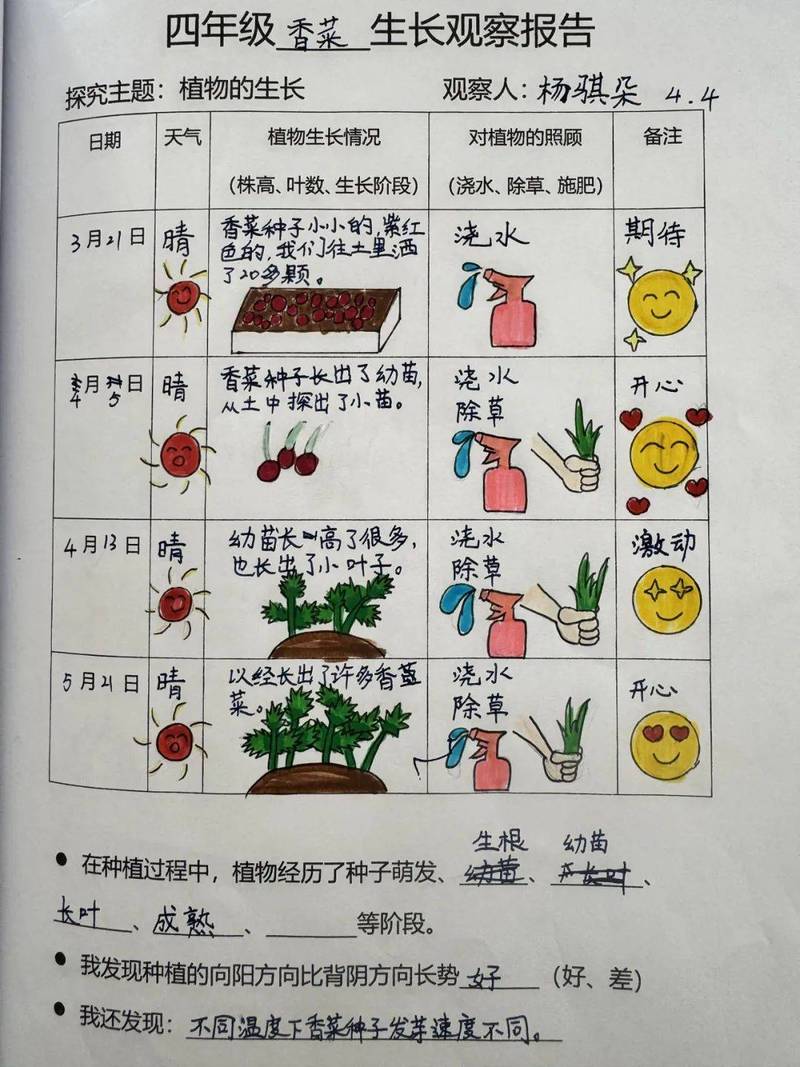 四年级 香菜 生长观察报告
探究主题：植物的生长 观察人：杨骐朵 4.4
日期 天气 植物生长情况 对植物的照顾 备注
（株高、叶数、生长阶段） （浇水、除草、施肥）
3月21日 晴 香菜种子小小的,紫红 浇水 期待
色的,我们往土里洒
了20多颗。
4月5日 晴 香菜种子长出了幼苗, 浇水 开心
从土中探出了小苗。 除草
4月13日 晴 幼苗长高了很多, 浇水 激动
也长出了小叶子。 除草
5月21日 晴 以经长出了许多香 浇水 开心
菜。 除草
生根 幼苗
● 在种植过程中，植物经历了种子萌发、幼苗、长叶、
长叶、成熟、等阶段。
● 我发现种植的向阳方向比背阴方向长势 好 （好、差）
● 我还发现：不同温度下香菜种子发芽速度不同。